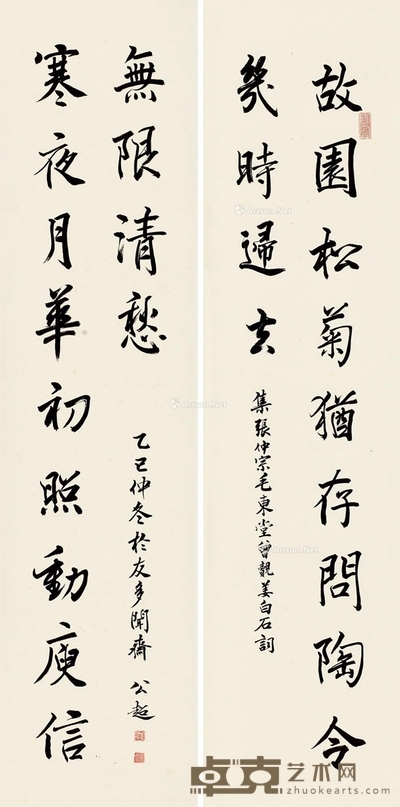 故園松菊猶存問陶令
幾時歸去
集張仲宗毛東堂曾覿姜白石詞
寒夜月華初照動庾信
無限清愁
乙巳仲冬於友多聞齋 公超
卓克艺术网
zhuokearts.com